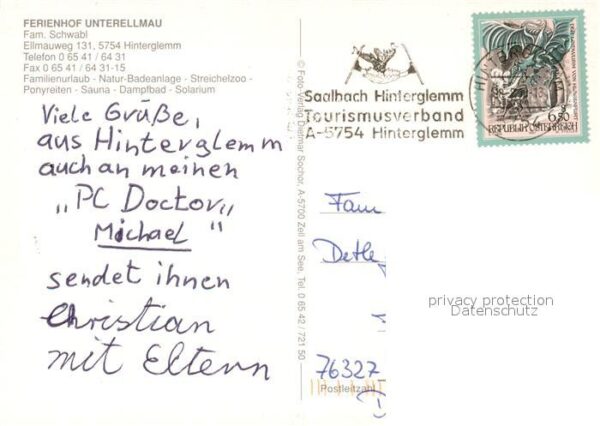 FERIENHOF UNTERELLMAU
Fam. Schwabl
Ellmauweg 131, 5754 Hinterglemm
Telefon 0 65 41 / 64 31
Fax 0 65 41 / 64 31-15
Familienurlaub - Natur-Badeanlage - Streichelzoo -
Ponyreiten - Sauna - Dampfbad - Solarium
Viele Grüße,
aus Hinterglemm
auch an meinen
„PC Doctor„
Michael "
sendet ihnen
Christian
mit Eltern
© Foto-Verlag Dietmar Sochor, A-5700 Zell am See, Tel. 0 65 42 / 721 50
Saalbach Hinterglemm
Tourismusverband
A-5754 Hinterglemm
6.50
REPUBLIK ÖSTERREICH
Fam
Detle
privacy protection
Datenschutz
76327
Postleitzahl